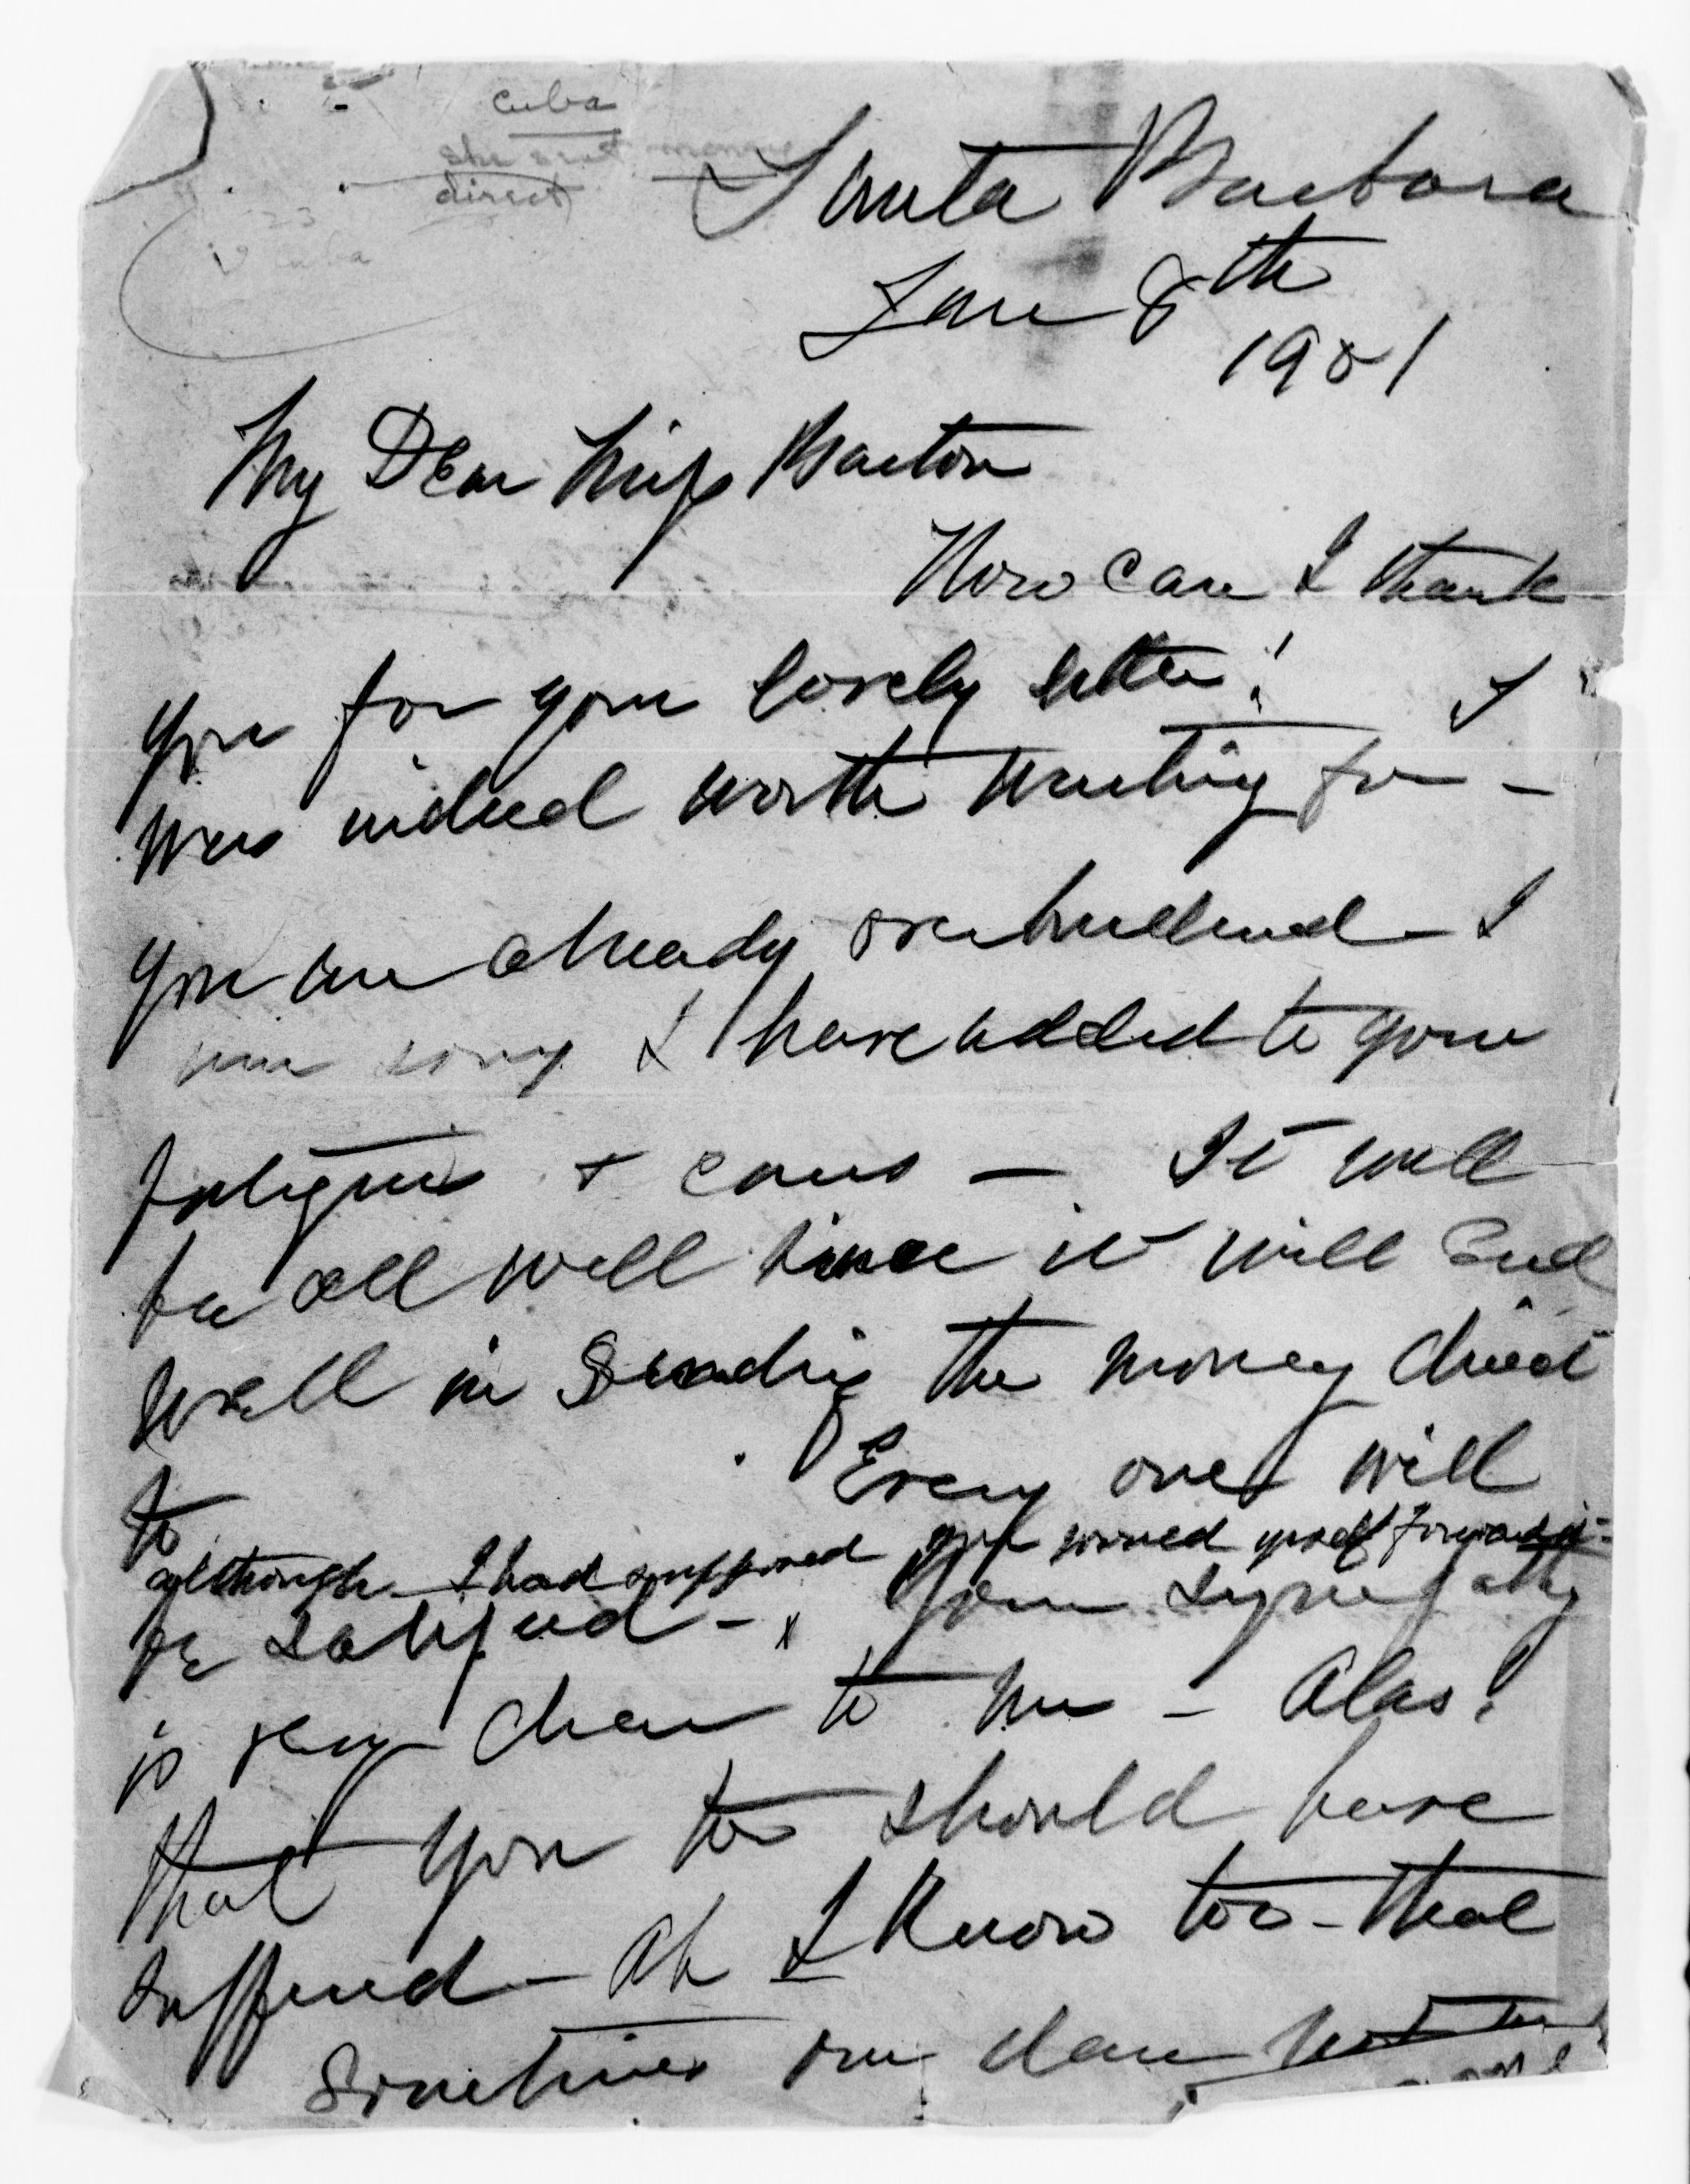 Cuba
she sent money
direct
Santa Barbara
Jan 8th
1901
My Dear Miss Barton
How can I thank
you for your lovely letter! I
was indeed worth waiting for -
you are already overburdened - I
am sorry I have added to your
fatigues + cares - It will
be all well since it will End
well in Sending the money direct
to Every one will
although I had supposed you would forward it -
be satisfied - x Your sympathy
is very dear to me - Alas!
that you too should have
suffered - Ah I Know too - that
Sometimes our dear